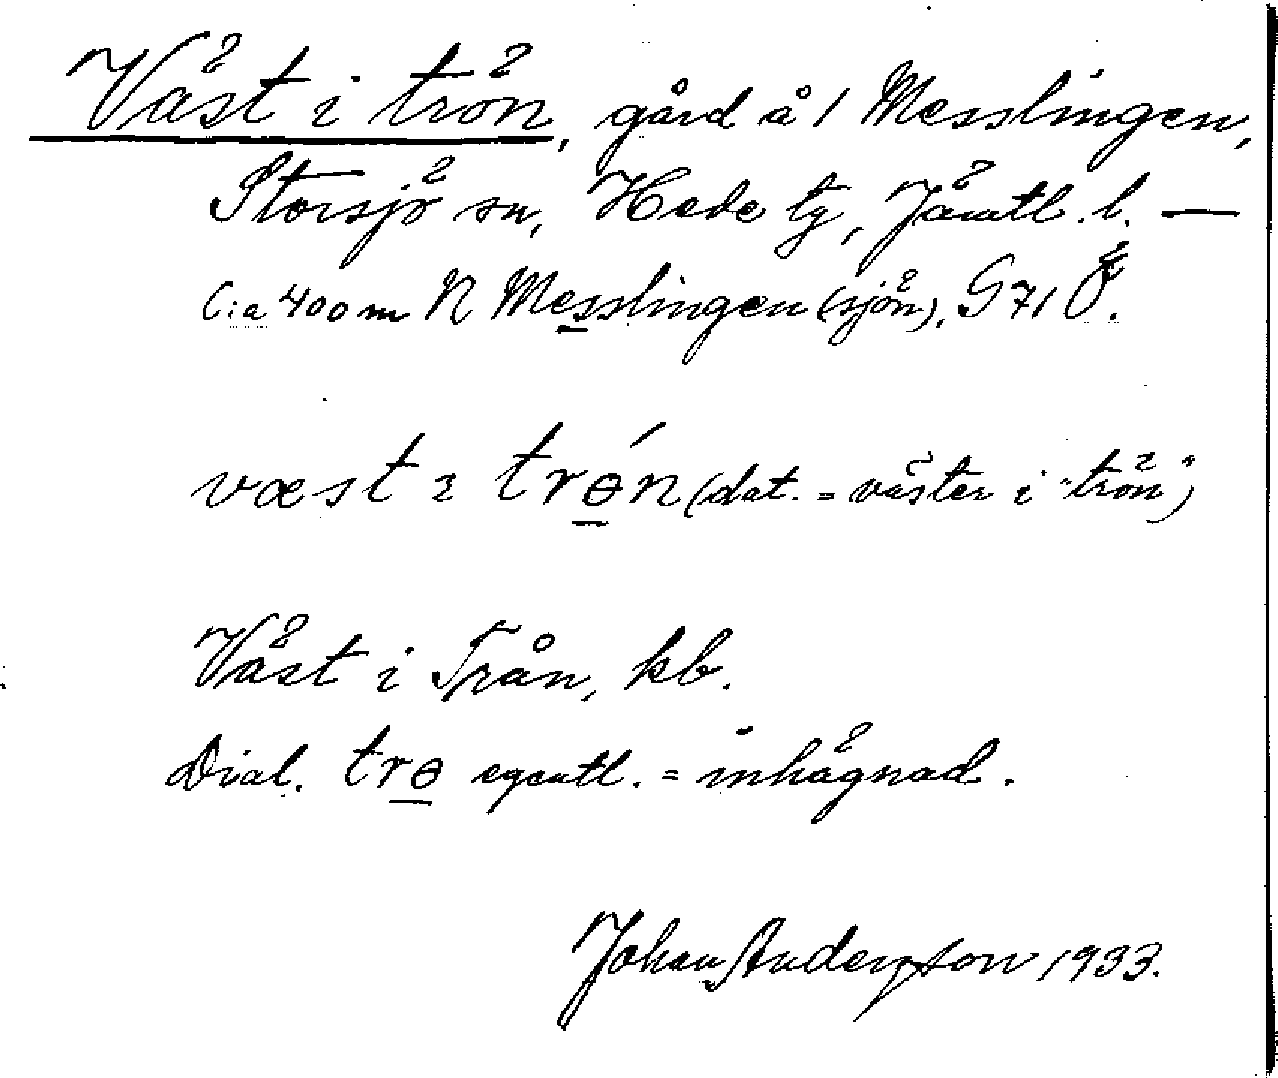 Väst i trön, gård å 1 Messlingen,
Storsjö sn, Hede tg, Jämtl. l. —
C:a 400 m N Messlingen (sjön). G 71 Ö.
væst ɪ trɵ́n (dat. = väster i "trön")
Väst i Trån, kb.
Dial. trɵ egentl. = inhägnad.
Johan Anderson 1933.